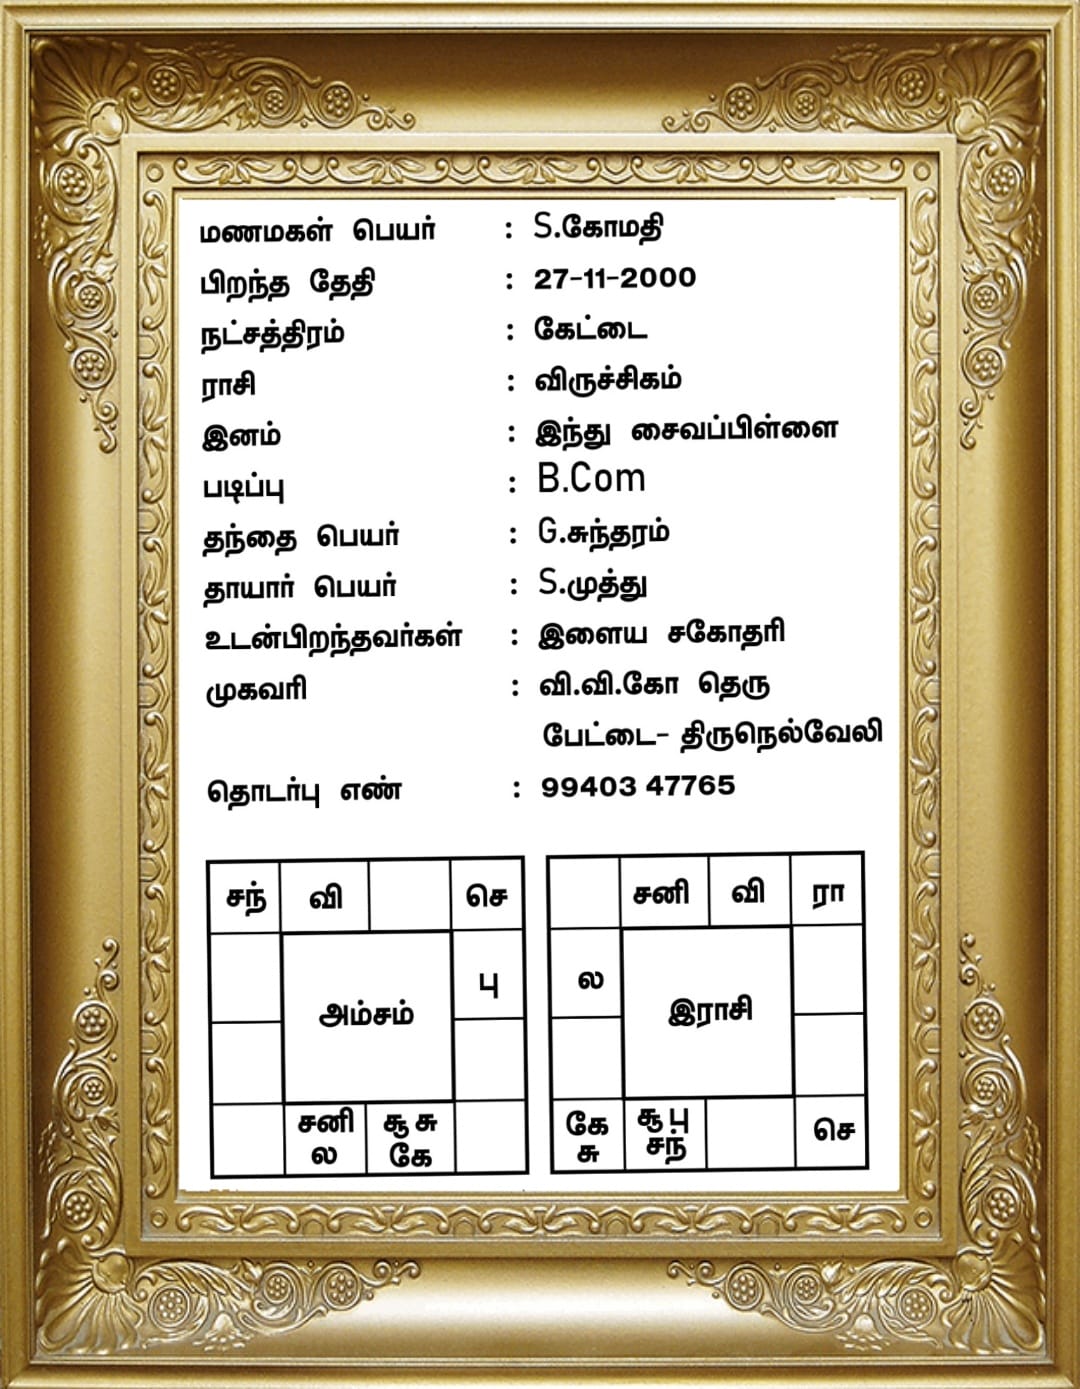 மணமகள் பெயர் : S.கோமதி
பிறந்த தேதி : 27-11-2000
நட்சத்திரம் : கேட்டை
ராசி : விருச்சிகம்
இனம் : இந்து சைவப்பிள்ளை
படிப்பு : B.Com
தந்தை பெயர் : G.சுந்தரம்
தாயார் பெயர் : S.முத்து
உடன்பிறந்தவர்கள் : இளைய சகோதரி
முகவரி : வி.வி.கோ தெரு
பேட்டை- திருநெல்வேலி
தொடர்பு எண் : 99403 47765
சந் வி செ
பு
அம்சம்
சனி சூ சு
ல கே
சனி வி ரா
ல
இராசி
கே சூ பு செ
சு சந்